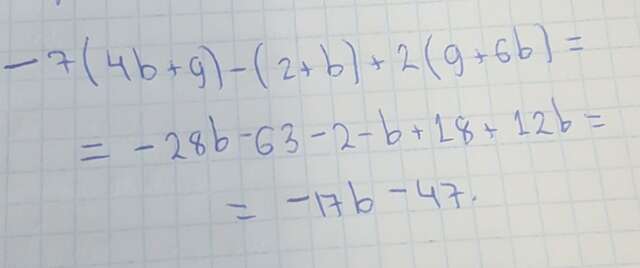 -7(4b+9)-(2+b)+2(9+6b)=
=-28b-63-2-b+18+12b=
=-17b-47.